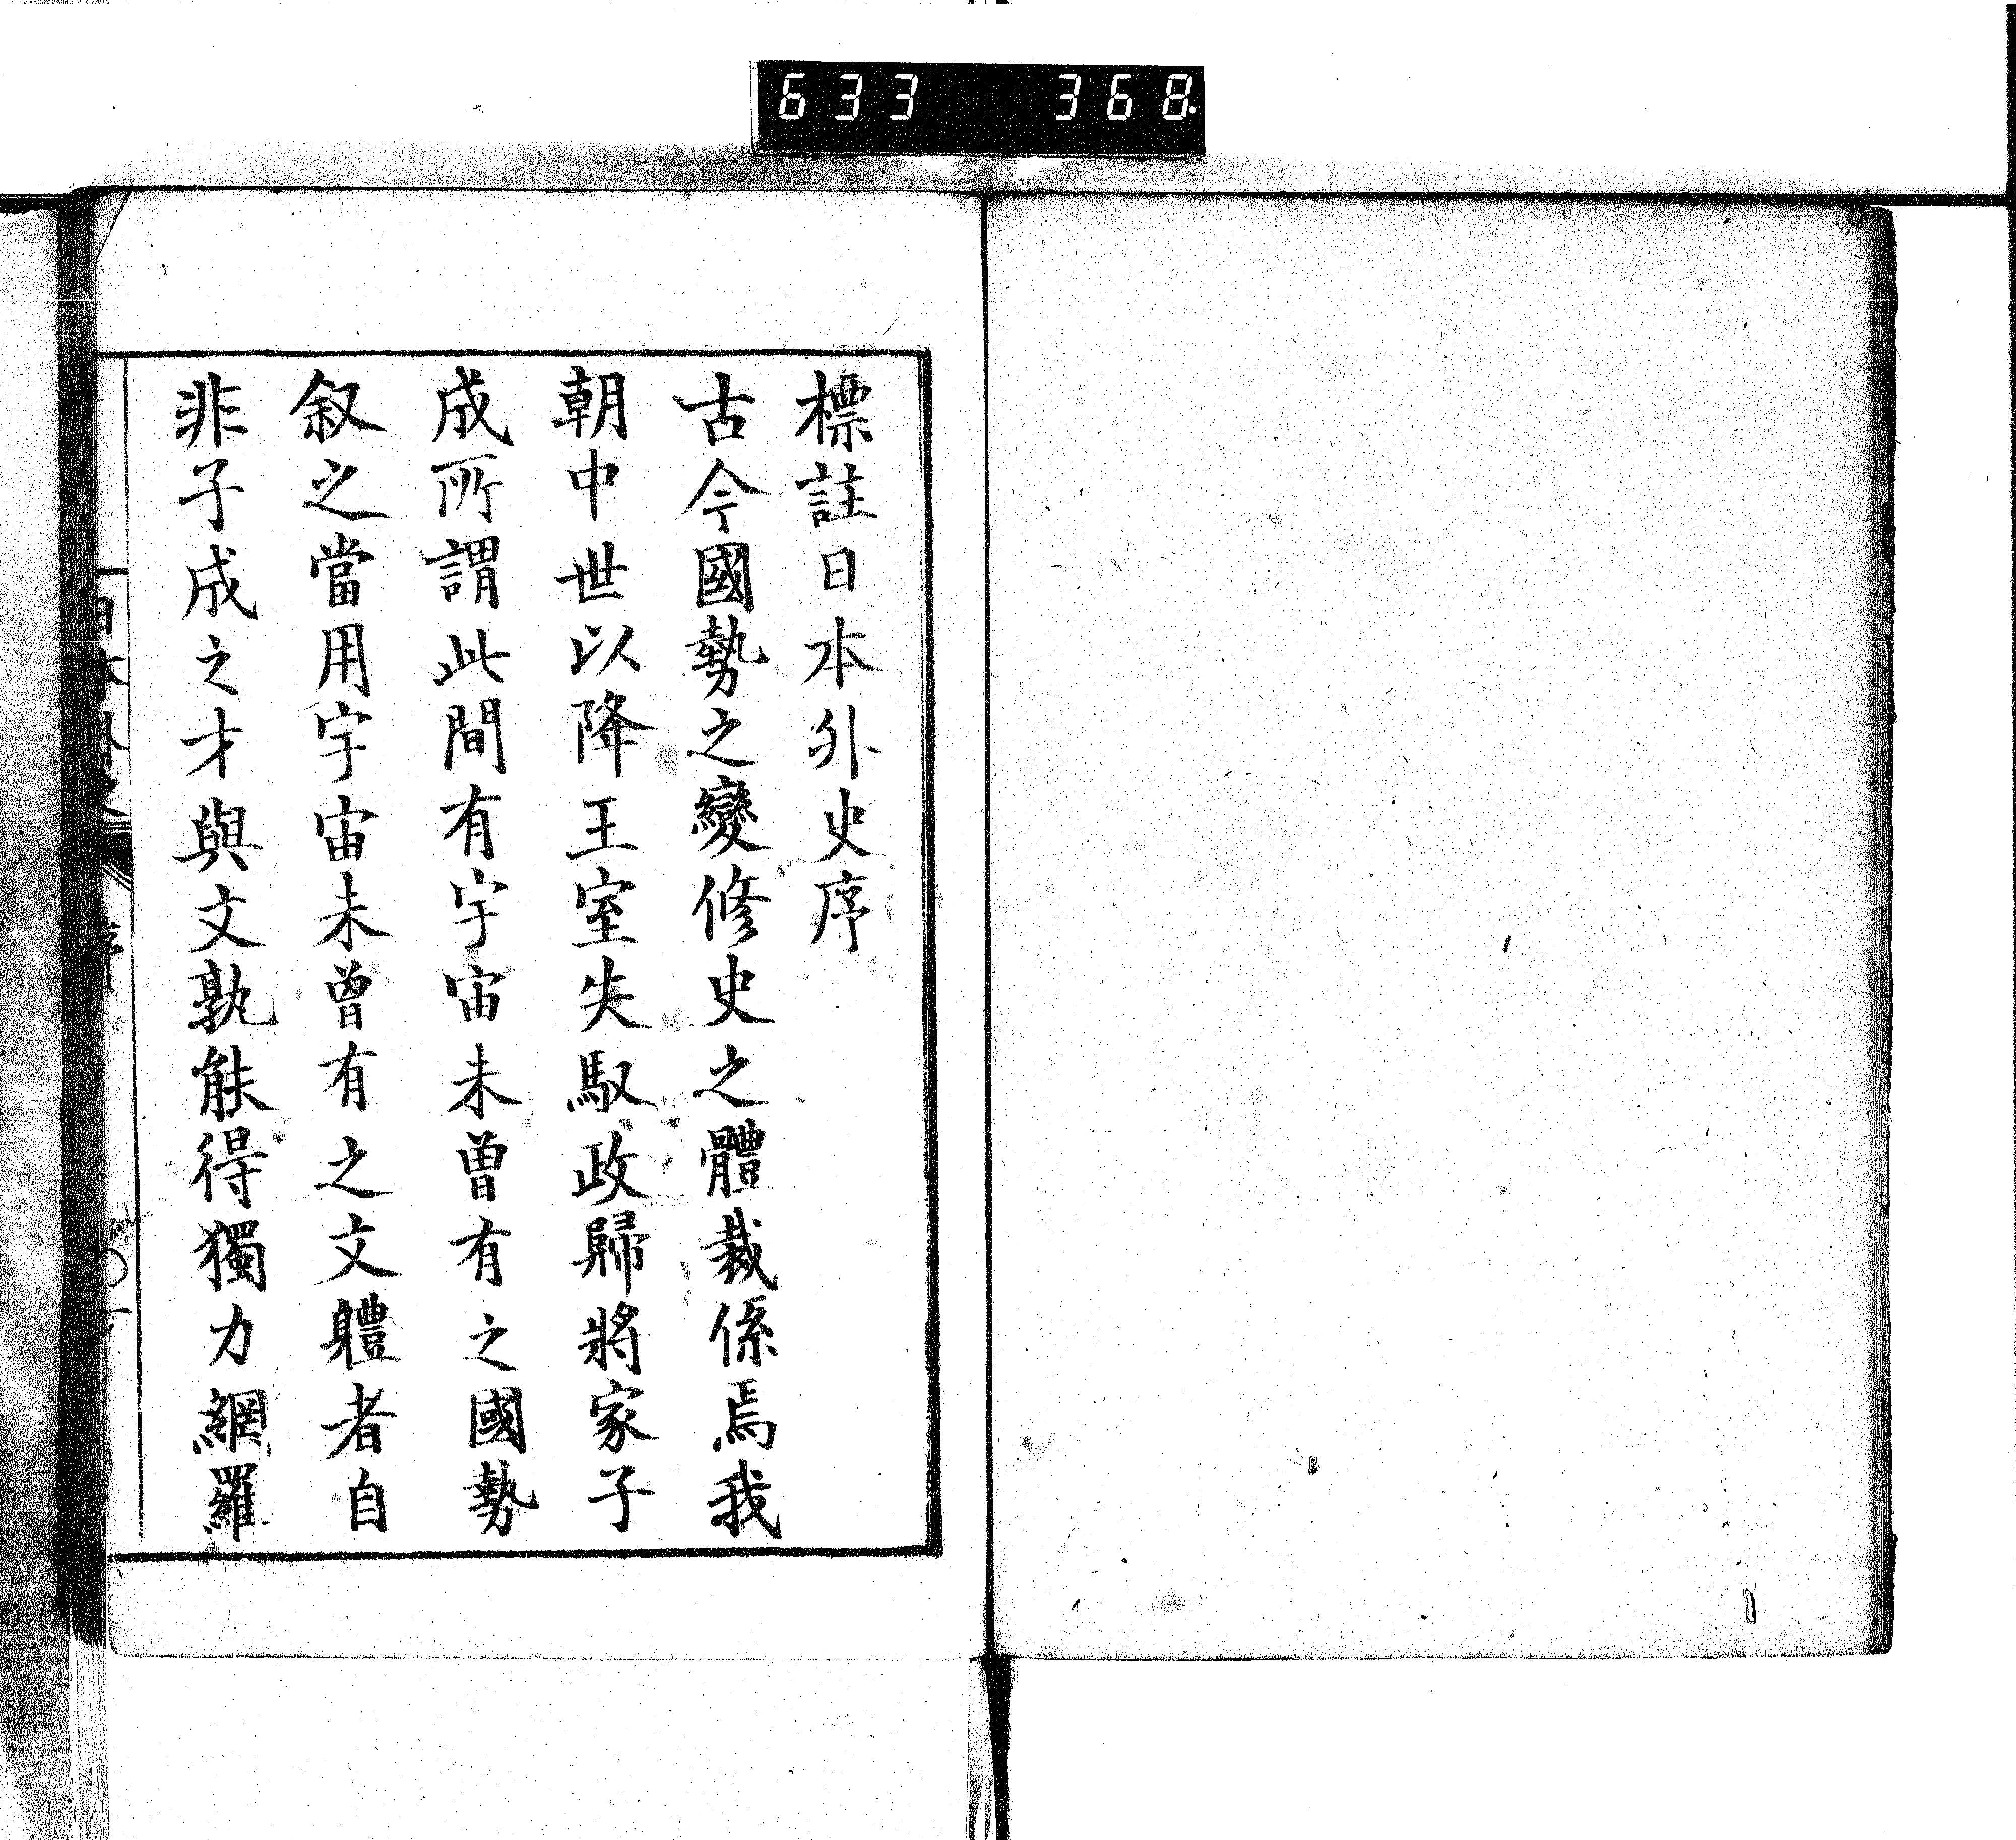 633 368
標註日本外史序
古今國勢之變修史之體裁係焉我
朝中世以降王室失馭政歸將家子
成所謂此間有宇宙未曾有之國勢
叙之當用宇宙未曾有之文軆者自
非子成之才與文孰能得獨力網羅
日本外史 序